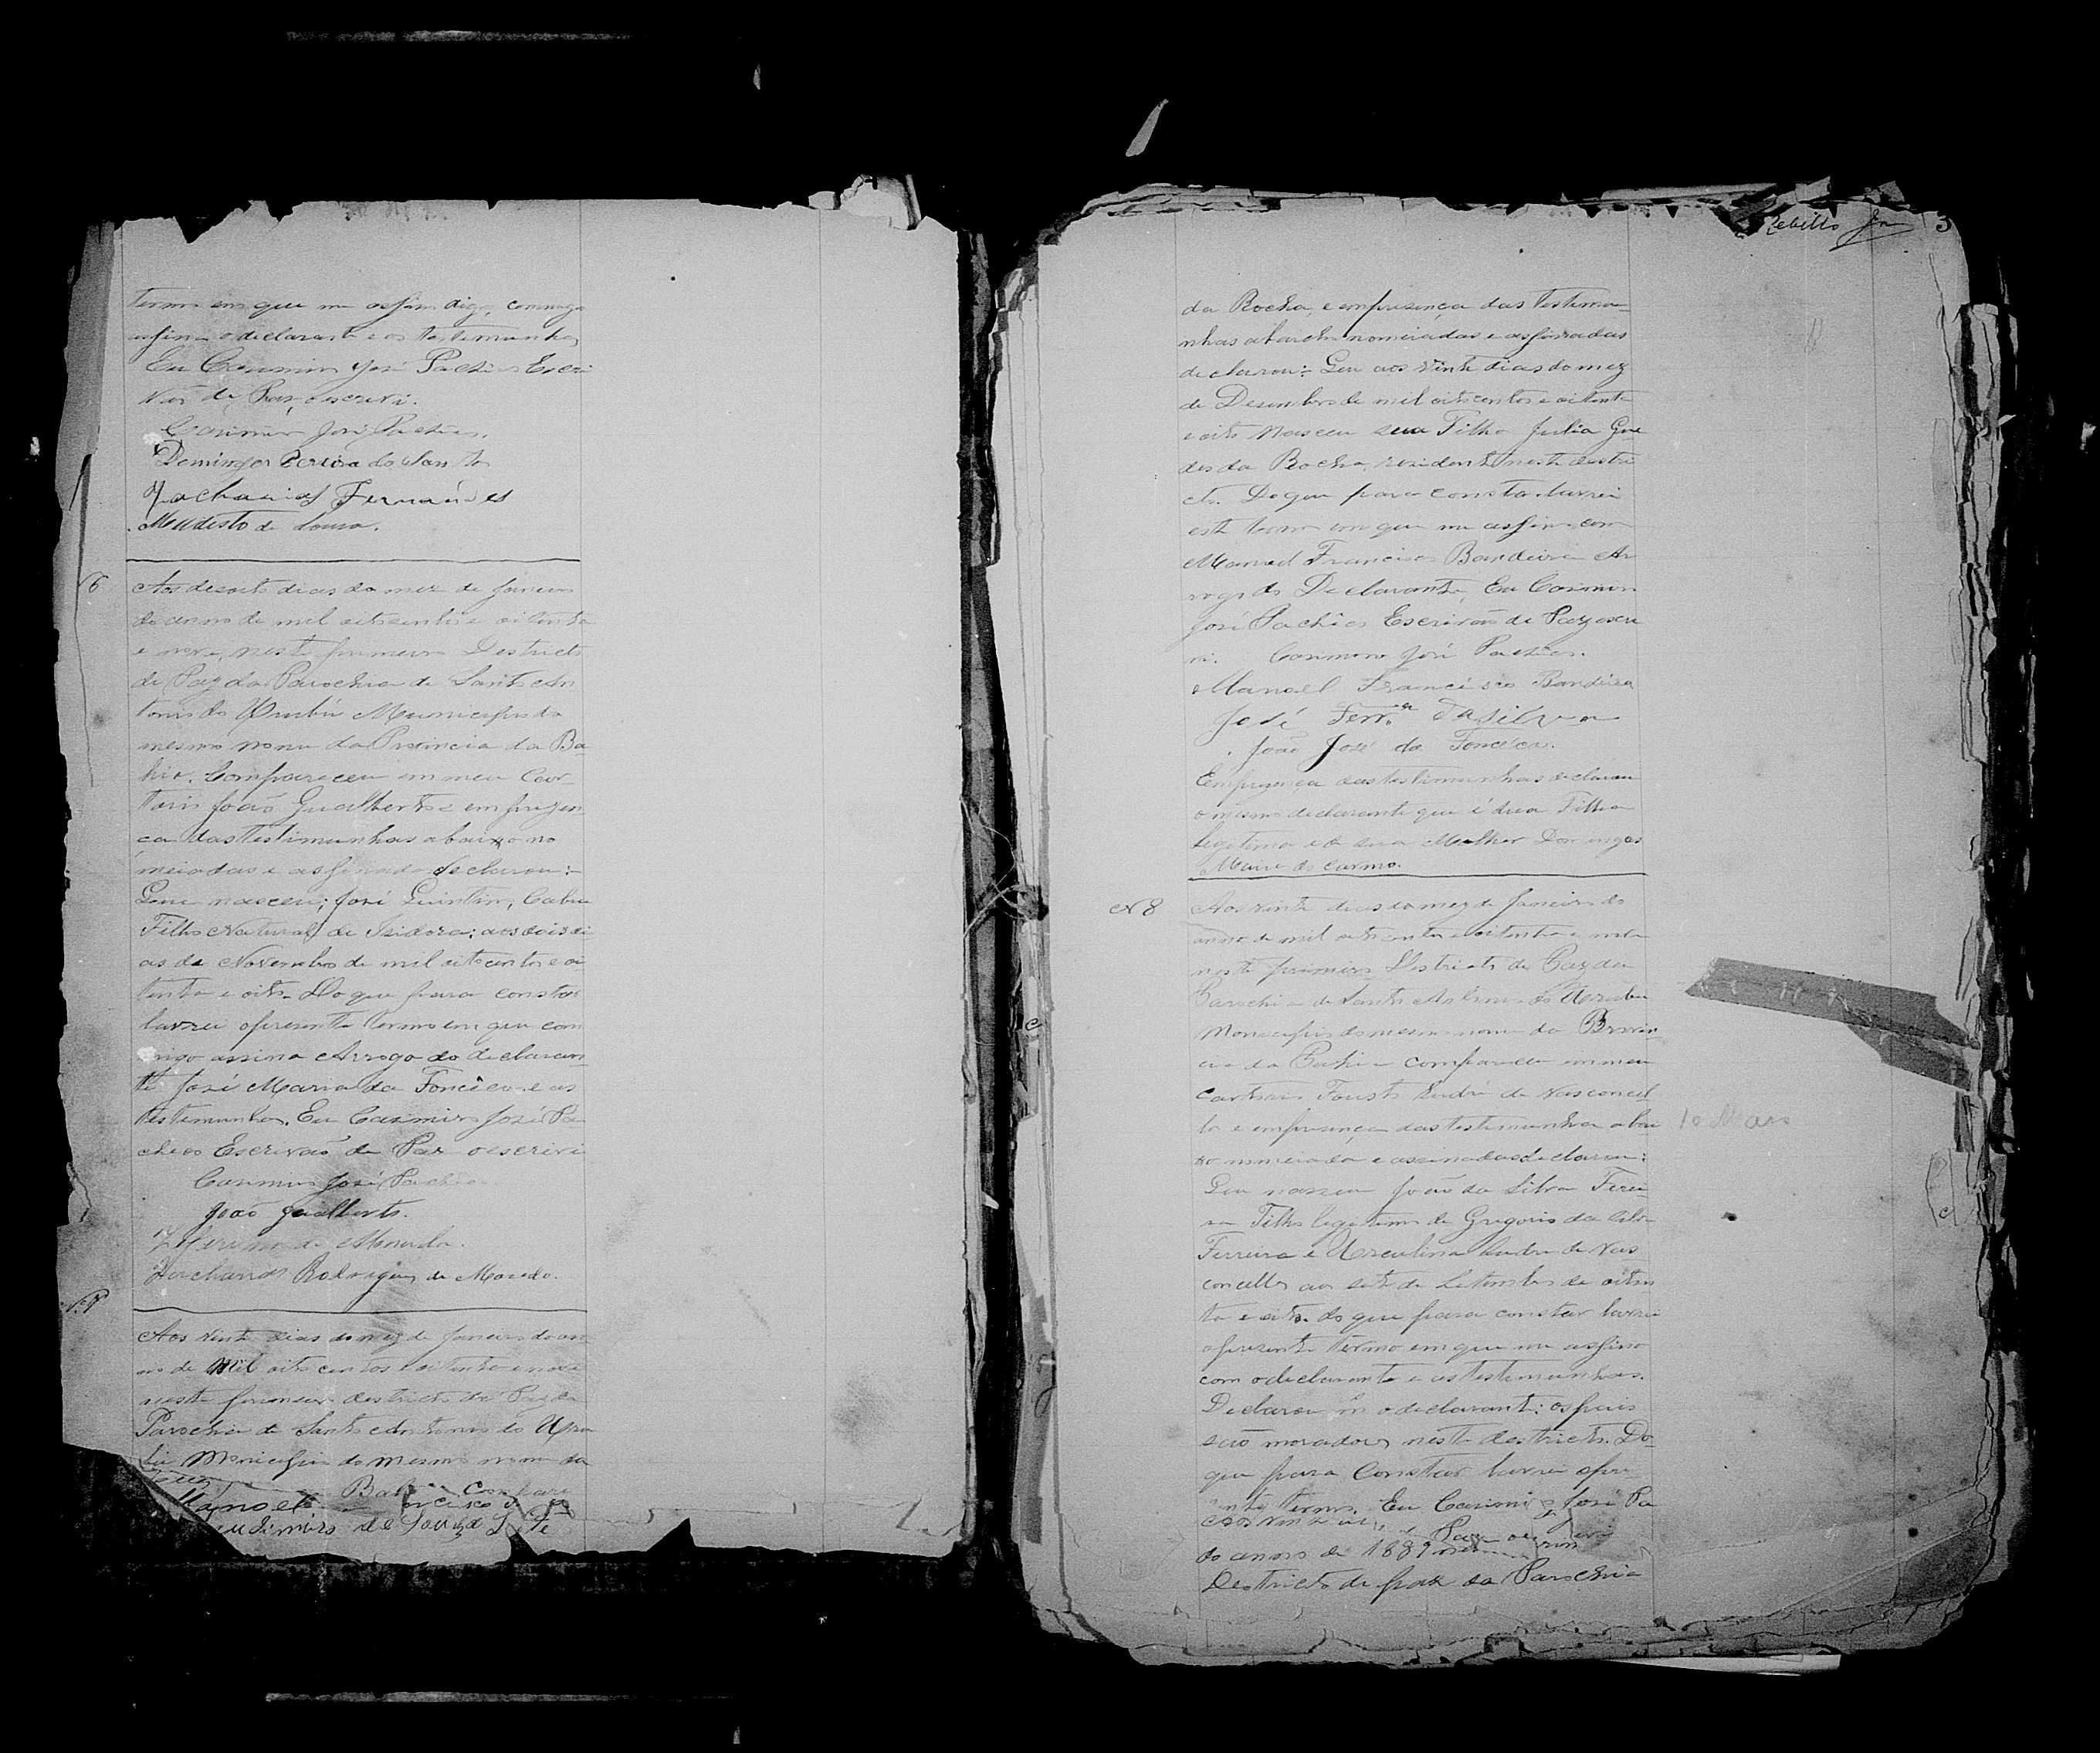 termo em que me assino digo, commigo
assina o declarante e as testemunhas
Eu Casimiro José Pachêco Escri
vão de Paz, o escrevi.
Casimiro José Pachêco.
Domingos Pereira do Santos
Zacharias Fernandes
Modesto de Souza.
6
Aos desoito dias do mez de Janeiro
do anno de mil oitocentos e oitenta
e nove, neste primeiro Destricto
de Paz da Parochia de Santo An
tonio do Urubú Municipio do
mesmo nome da Provincia da Ba
hia. Compareceu em meu Car-
torio João Gualberto e em presen
ca das testimunhas abaixo no
meiadas e assignado declarou:-
Que nasceu; José Quintino, Cabra
Filho Natural de Isidora: aos dois di
as de Novembro de mil oitocentos e oi
tenta e oito. Do que para constar
lavrei o presente termo em que com
migo assina Arrogo do declaran
te José Maria da Fonceca e as
testimunhas. Eu Casimiro José Pa-
chêco Escrivão de Paz o escrevi
Casimiro José Pachêco
João Gualberto.
de Miranda.
Zacharias Rodrigues de Macedo.
N. 7
Aos vinte dias do mez de Janeiro do an
no de Mil oito centos e oitenta e nove
neste primeiro destricto de Paz da
Parochia de Santo Antonio do Uru
bú Municipio do mesmo nome da
Bahia Compare
Manoel
de Souza
Rebello Jor 3
da Rocha, e em presença das testemu-
nhas abaicho nomeiadas e assinadas
declarou: Que aos vinte dias do mez
de Desembro de mil oitocentos e oitenta
e oito Nasceu sua Filha Julia Gue
des da Rocha, residente neste destri
cto. Do que para constar lavrei
este termo em que me assino com
Manoel Francisco Bandeira Ar
rogo do Declarante, Eu Casimiro
José Pachêco Escrivão de Paz escre
vi. Casimiro José Pachêco.
Manoel Francisco Bandeira
José Ferra. da Silva
João José da Fonceca.
Em presença das testimunhas declarou
o mesmo declarante que é sua Filha
legitima e de sua Mulher Domingas
Maria do Carmo.
N 8
Aos vinte dias do mez de Janeiro do
anno de mil oitocentos e oitenta e nove
neste primeiro Destricto de Paz da
Parochia de Santo Antonio do Urubu
Municipio do mesmo nome da Provin
cia da Bahia compareceu em meu
Cartorio Fausto André de Vasconcel
lo e em presença das testimunhas abai
xo nomeiada e assinadas declarou:
Que nasceu João da Silva Ferei-
ra Filho legitimo de Gregorio da Silva
Ferreira e Urculina André de Vas
concellos aos sete de Setembro de oiten
ta e oito. do que para constar lavrei
o presente termo em que me assino
com o declarante e as testimunhas.
Declarou o declarante: os pais
são moradores neste destricto. Do
que para Constar lavrei o pre
sente termo. Eu Casimiro José Pa
de Paz
do anno de 1889
Destricto de paz da Parochia
10 Maio